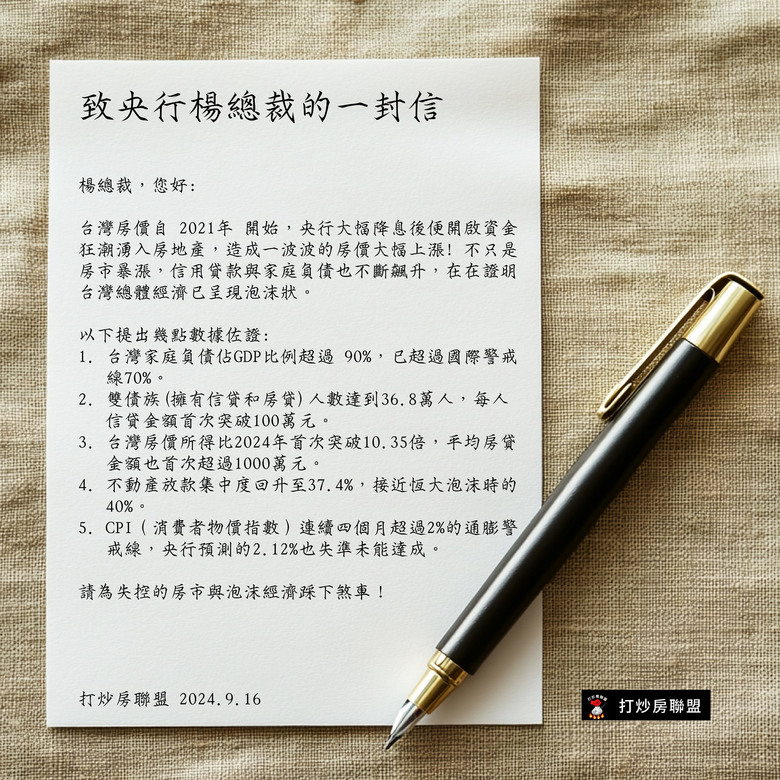 致央行楊總裁的一封信
楊總裁，您好:
台灣房價自 2021年 開始，央行大幅降息後便開啟資金
狂潮湧入房地產，造成一波波的房價大幅上漲! 不只是
房市暴漲，信用貸款與家庭負債也不斷飆升，在在證明
台灣總體經濟已呈現泡沫狀。
以下提出幾點數據佐證:
1. 台灣家庭負債佔GDP比例超過 90%，已超過國際警戒
線70%。
2. 雙債族(擁有信貸和房貸)人數達到36.8萬人，每人
信貸金額首次突破100萬元。
3. 台灣房價所得比2024年首次突破10.35倍，平均房貸
金額也首次超過1000萬元。
4. 不動產放款集中度回升至37.4%，接近恆大泡沫時的
40%。
5. CPI（消費者物價指數）連續四個月超過2%的通膨警
戒線，央行預測的2.12%也失準未能達成。
請為失控的房市與泡沫經濟踩下煞車！
打炒房聯盟 2024.9.16
打炒房聯盟
打炒房聯盟